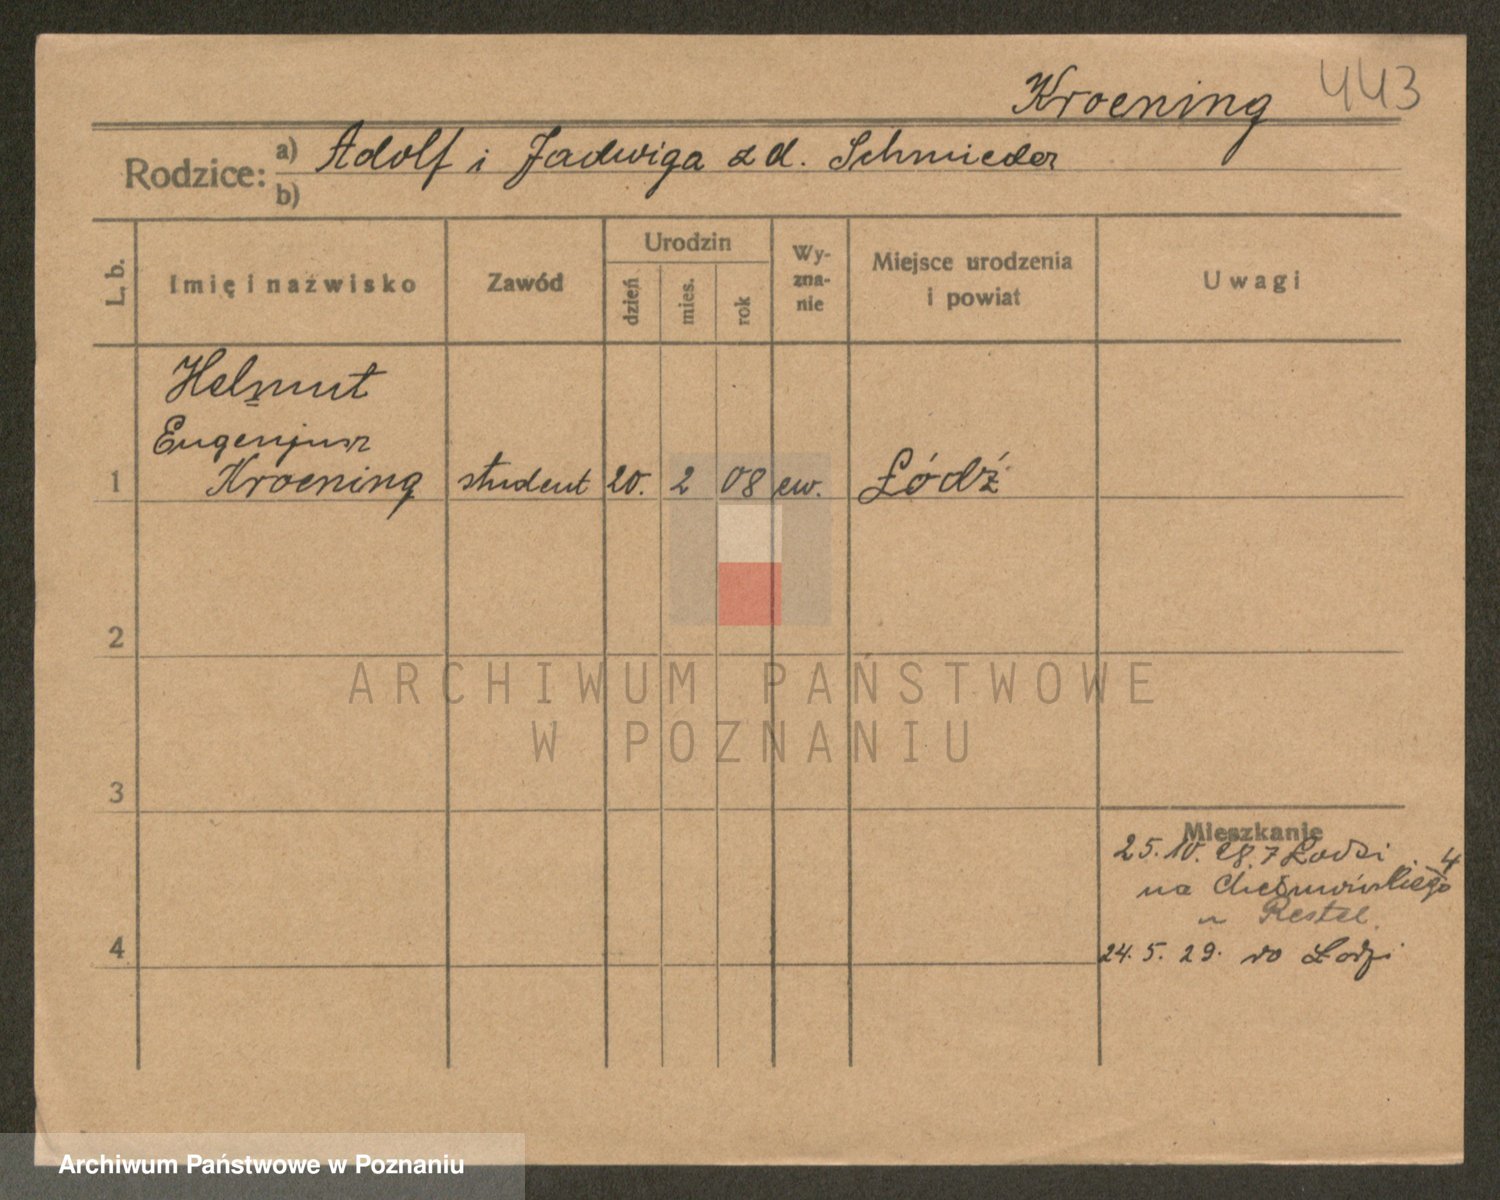 Kroening 443
Rodzice: a) Adolf i Jadwiga z d. Schmieder
b)
L. b.
Imię i nazwisko
Zawód
Urodzin
dzień
mies.
rok
Wy-
zna-
nie
Miejsce urodzenia
i powiat
Uwagi
Helmut
Eugenjusz
1 Kroening student 20. 2 08 ew. Łódź
2
3
4
Mieszkanie
25.10.28. z Łodzi
na Chełmońskiego 4
u Restel
24.5.29. do Łodzi
ARCHIWUM PAŃSTWOWE
W POZNANIU
Archiwum Państwowe w Poznaniu